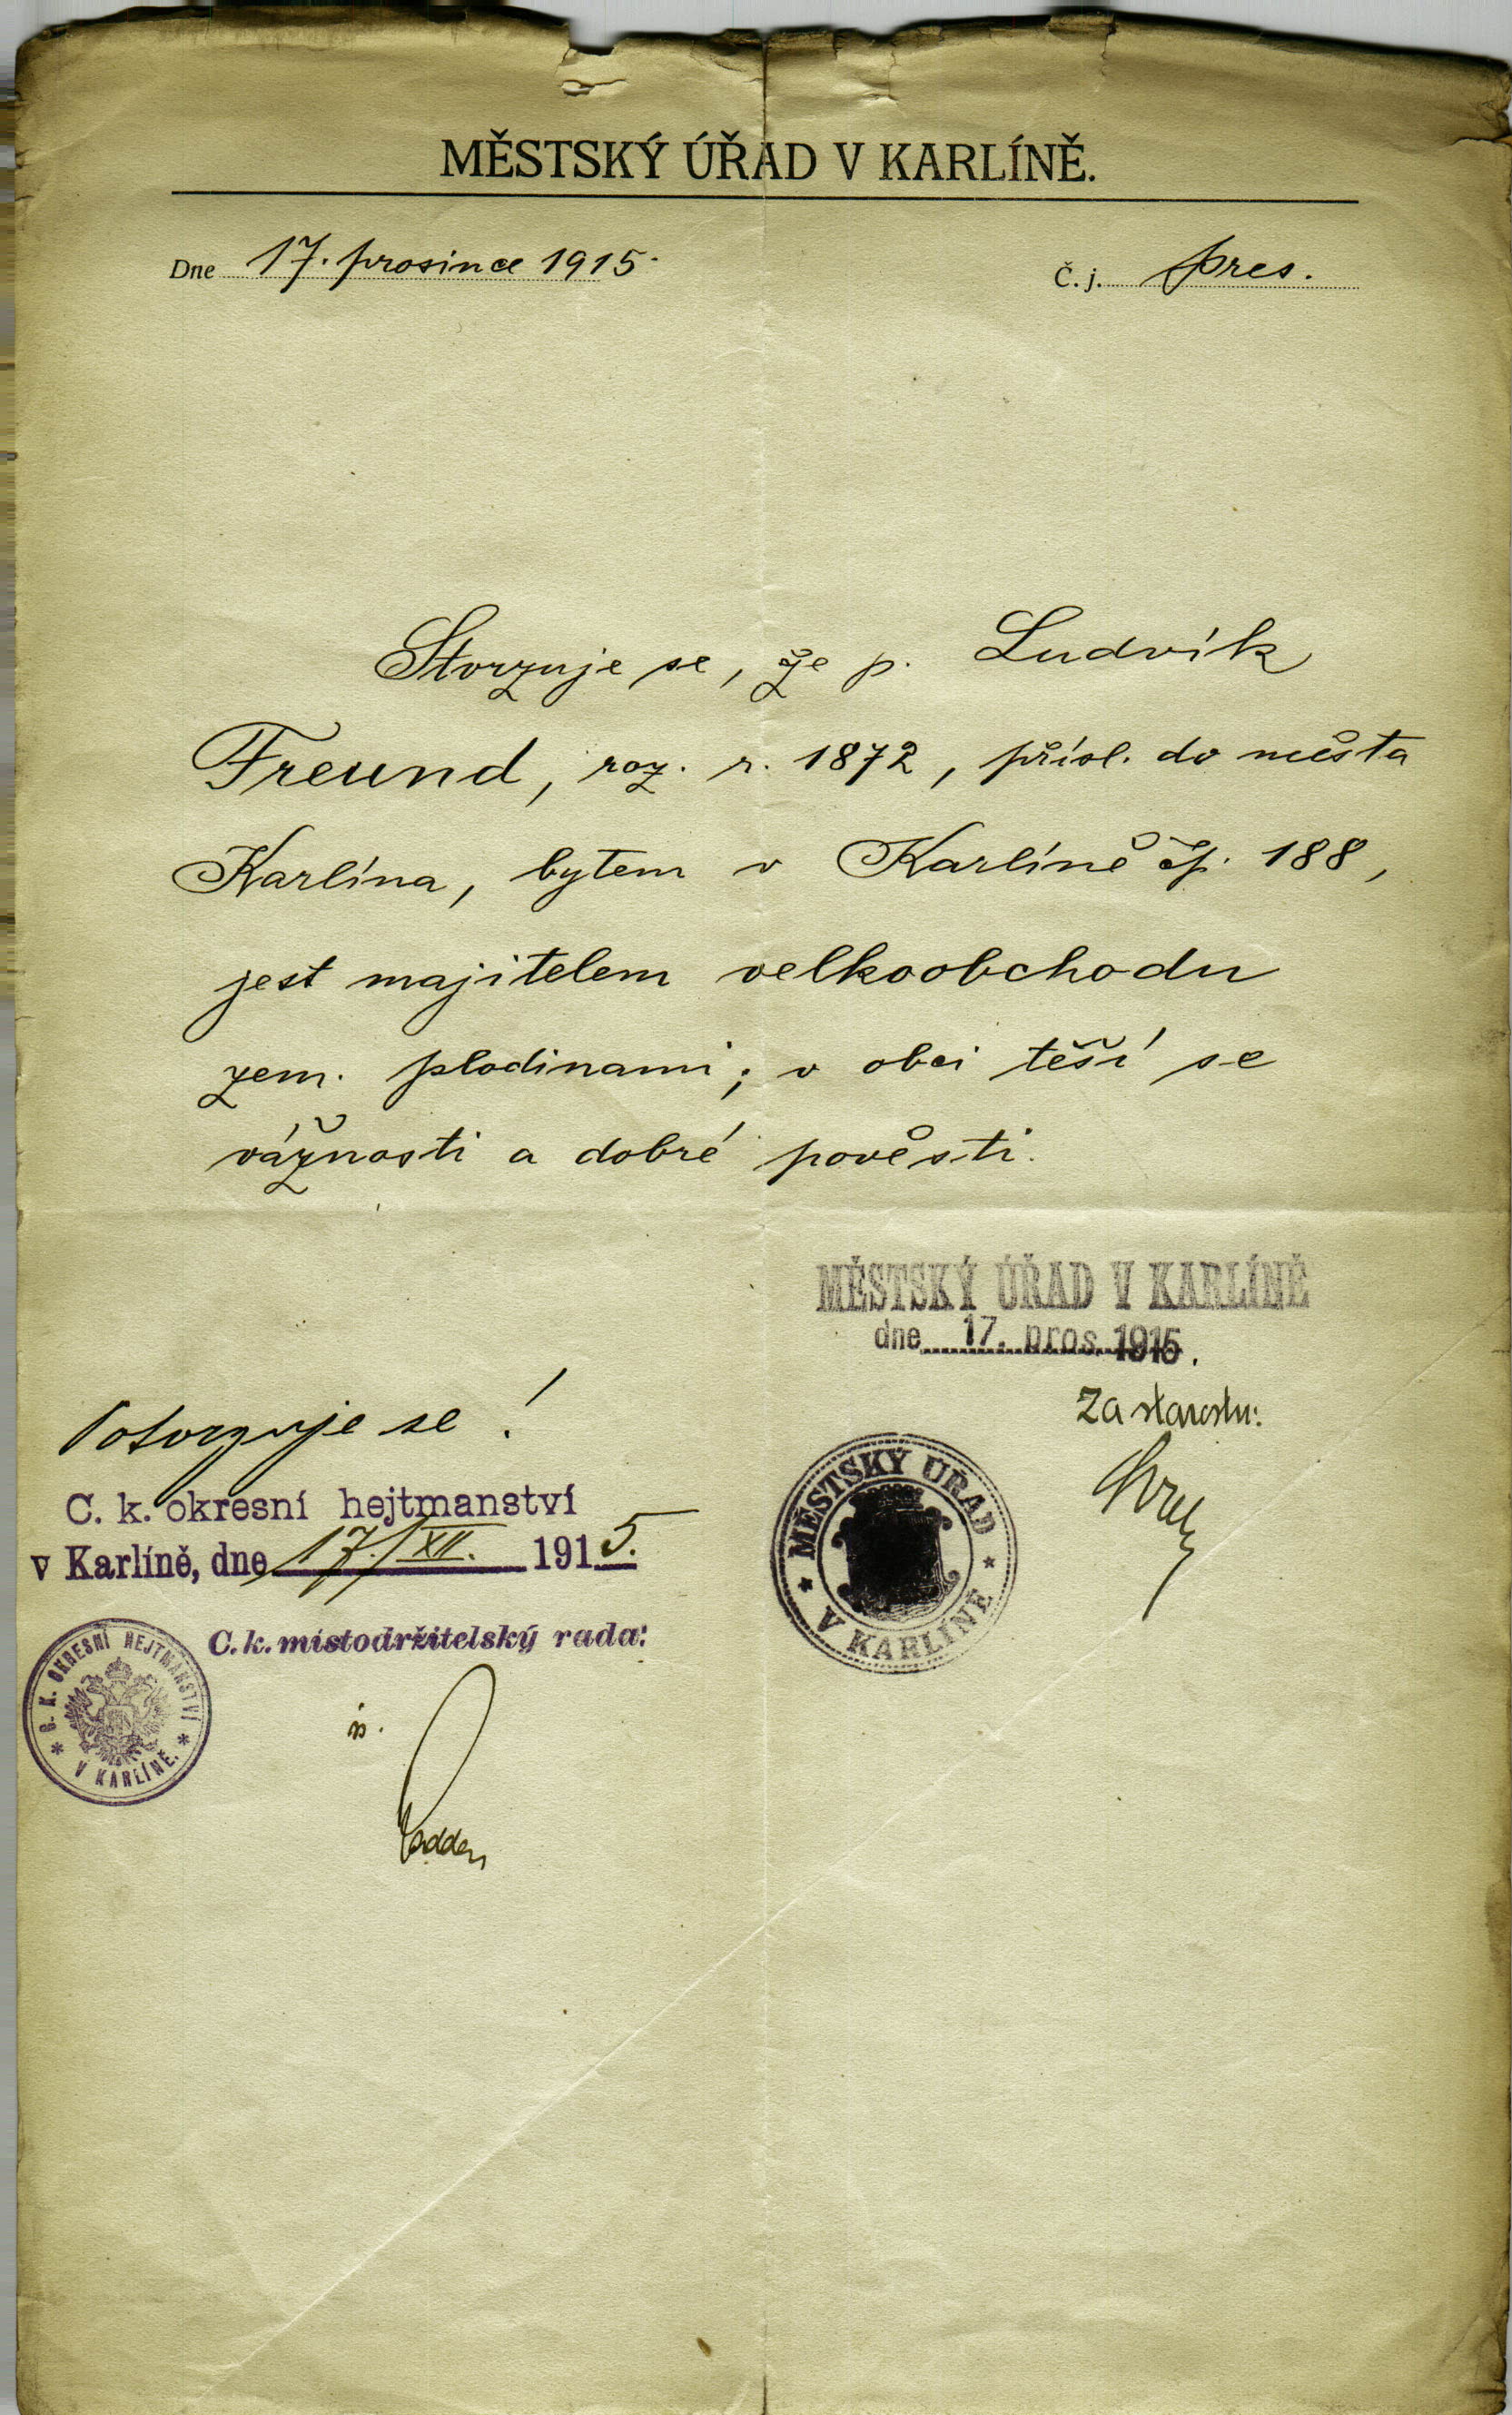 MĚSTSKÝ ÚŘAD V KARLÍNĚ.
Dne 17. prosince 1915.
Č. j. pres.
Stvrzuje se, že p. Ludvík
Freund, roz. r. 1872, přísl. do města
Karlína, bytem v Karlíně čp. 188,
jest majitelem velkoobchodu
zem. plodinami; v obci těší se
vážnosti a dobré pověsti.
MĚSTSKÝ ÚŘAD V KARLÍNĚ
dne 17. pros. 1915.
Za starostu:
MĚSTSKÝ ÚŘAD
V KARLÍNĚ
Potvrzuje se!
C. k. okresní hejtmanství
v Karlíně, dne 17./XII. 1915.
C. k. místodržitelský rada:
C. K. OKRESNÍ HEJTMANSTVÍ
V KARLÍNĚ.